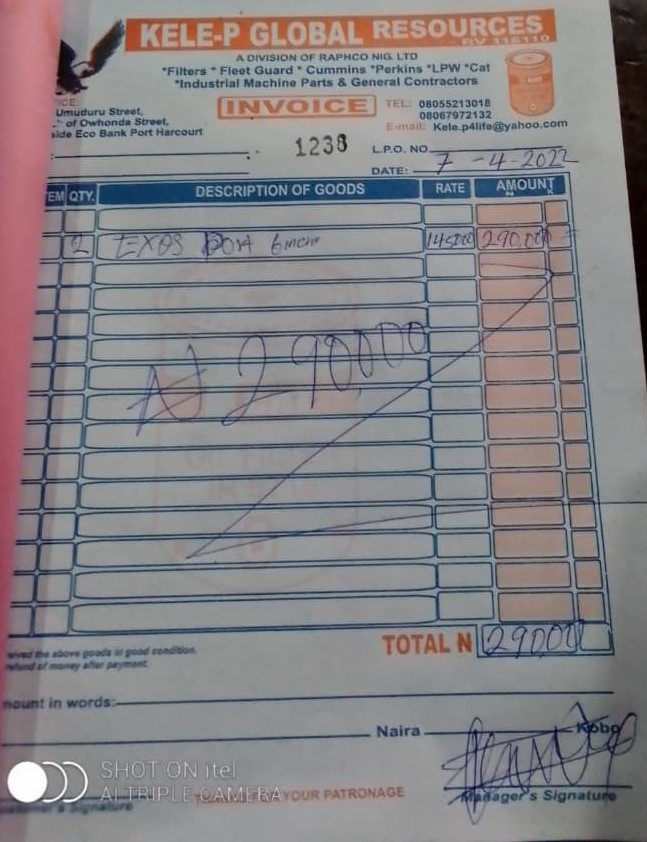 KELE-P GLOBAL RESOURCES
RV 116110
A DIVISION OF RAPHCO NIG. LTD
*Filters * Fleet Guard * Cummins *Perkins *LPW *Cat
*Industrial Machine Parts & General Contractors
ICE:
Umuduru Street,
of Owhonda Street,
side Eco Bank Port Harcourt
INVOICE
TEL: 08055213018
08067972132
E-mail: Kele.p4life@yahoo.com
1238
L.P.O. NO
DATE: 7-4-2022
EM QTY. DESCRIPTION OF GOODS RATE AMOUNT
N K
2 145000 290,000 =
₦290,000
eived the above goods in good condition.
refund of money after payment.
TOTAL N 290,000
mount in words:
Naira Kobo
SHOT ON itel
AI TRIPLE CAMERA
YOUR PATRONAGE
Manager's Signature
Signature